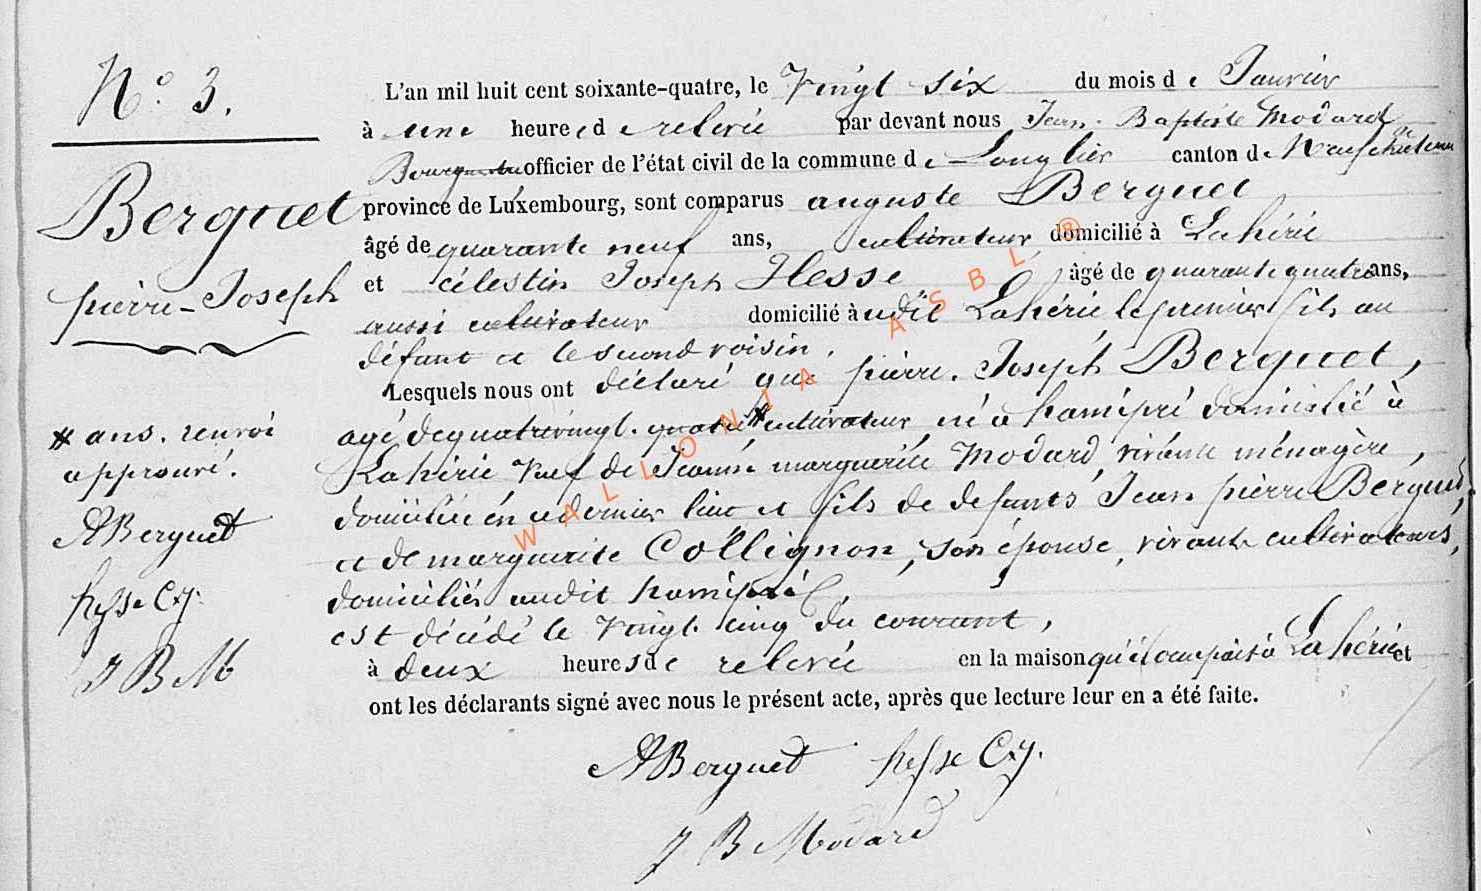 N.° 3.
Berquet
pierre-Joseph
* ans. renvoi
approuvé.
ABerquet
hesse C.J.
J B M
L'an mil huit cent soixante-quatre, le Vingt six du mois de Janvier
à une heure de relevée par devant nous Jean-Baptiste Modard
Bourgmestre officier de l'état civil de la commune de Longlier canton de Neufchateau
province de Luxembourg, sont comparus auguste Berquet
âgé de quarante neuf ans, cultivateur domicilié à Lahérie
et célestin Joseph Hesse âgé de quarante quatre ans,
aussi cultivateur domicilié à udit Lahérie le premier fils du
défunt et le second voisin.
Lesquels nous ont déclaré que pierre-Joseph Berquet,
agé de quatrevingt-quatre * cultivateur, né à hamipré domicilié à
Lahérie Veuf de Jeanne marguerite Modard, vivante ménagère,
domiciliée en ce dernier lieu et fils de defunts Jean pierre Berquet,
et de marguerite Collignon, son épouse, vivants cultivateurs,
domiciliés audit hamipré,
est décédé le vingt-cinq du courant,
à deux heures de relevée en la maison qu'il occupait à Lahérie et
ont les déclarants signé avec nous le présent acte, après que lecture leur en a été faite.
ABerquet hesse C.J.
J B Modard
WALLONIA ASBL ®